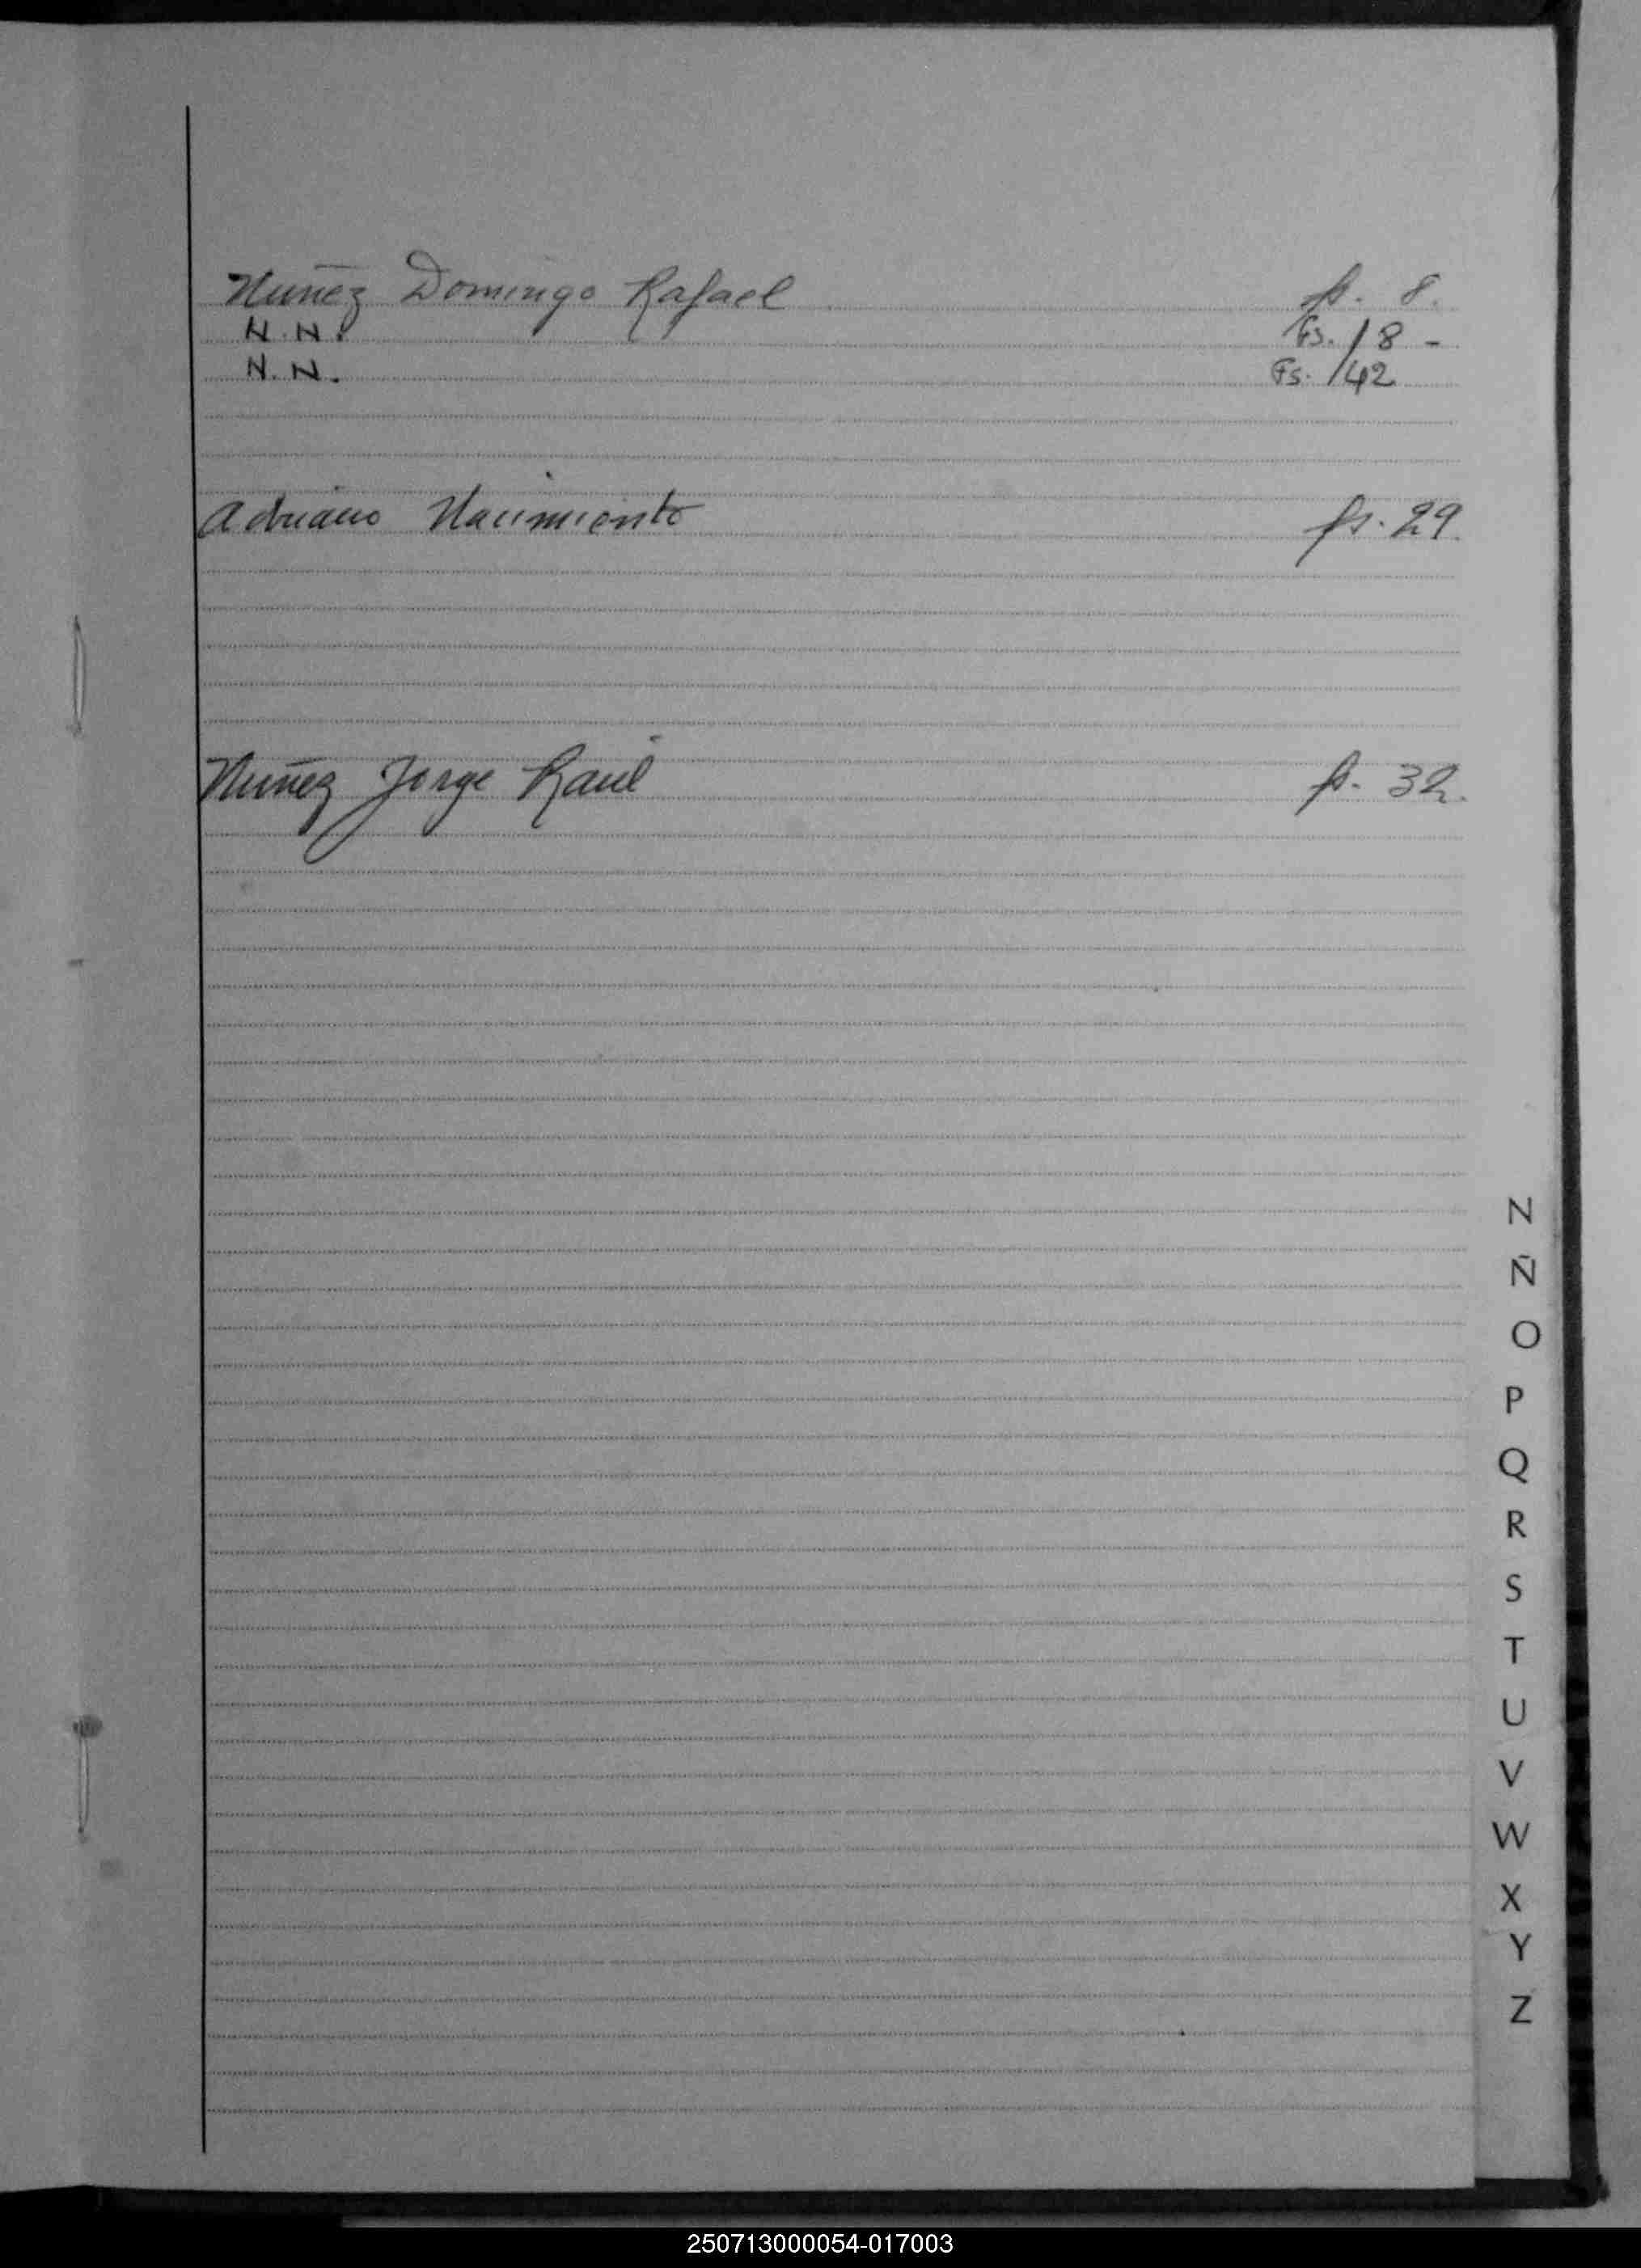 Nuñez Domingo Rafael fs. 8.
N.N. Fs. 18 -
N.N. Fs. 142
Adriano Nacimiento fs. 29.
Nuñez Jorge Raúl fs. 32.
N
Ñ
O
P
Q
R
S
T
U
V
W
X
Y
Z
250713000054-017003